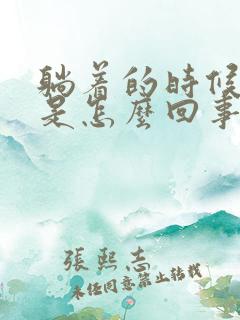 躺着的時候
是怎麼回事
張熙志
未经同意禁止转载